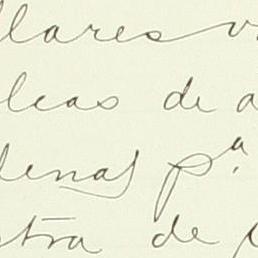 llares v
leas de a
lenas pª.
stra de